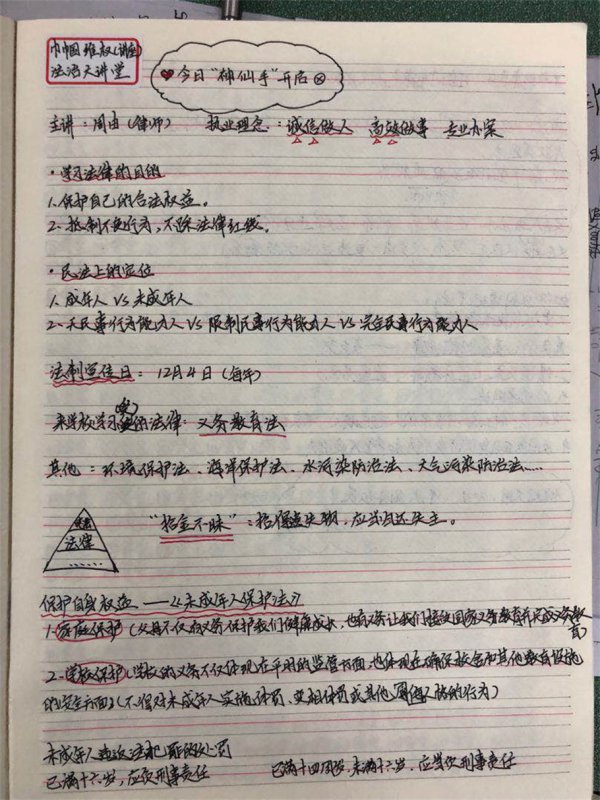 巾帼维权(讲座)
法治大讲堂
今日“神仙手”开启
主讲：周由（律师） 执业理念：诚信做人 高效做事 专业办案
·学习法律的目的
1.保护自己的合法权益。
2.抵制不良行为，不踩法律红线。
·民法上的定位
1.成年人 VS 未成年人
2.无民事行为能力人 VS 限制民事行为能力人 VS 完全民事行为能力人
法制宣传日：12月4日（每年）
来学校学习的法律：义务教育法
其他：环境保护法、海洋保护法、水污染防治法、大气污染防治法……
宪法
法律
“拾金不昧”：拾得遗失物，应当归还失主。
保护自身权益——《未成年人保护法》
1.家庭保护（父母不仅有义务保护我们健康成长，也有义务让我们接受国家义务教育并完成义务教育）
2.学校保护（学校的义务不仅体现在平时的监管方面，也体现在确保校舍和其他教育设施
的安全方面）（不得对未成年人实施体罚、变相体罚或其他侮辱人格的行为）
未成年人违反法犯罪的处罚
已满十六岁，应负刑事责任 已满十四周岁，未满十六岁，应当负刑事责任